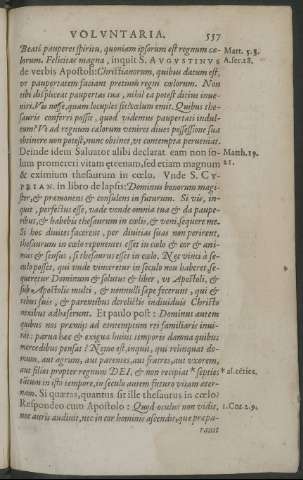 VOLVNTARIA. 557
Beati pauperes spiritu, quoniam ipsorum est regnum cæ-
lorum. Felicitas magna, inquit S. AVGVSTINVS
de verbis Apostoli: Christianorum, quibus datum est,
vt paupertatem faciant pretium regni cælorum. Non
tibi displiceat paupertas tua, nihil ea potest ditius inue-
niri. Vis nosse, quam locuples sit? cælum emit. Quibus the-
sauris conferri posset, quod videmus paupertati indul-
tum? Vt ad regnum cælorum veniret diues possessione sua
obtinere non potest, nunc obtinet, vt contempta perueniat.
Deinde idem Saluator alibi declarat eam non so-
lum promereri vitam æternam, sed etiam magnum
& eximium thesaurum in cœlo. Vnde S. CY-
PRIAN. in libro de lapsis: Dominus bonorum magi-
ster, & præmonens & consulens in futurum. Si vis, in-
quit, perfectus esse, vade vende omnia tua & da paupe-
ribus, & habebis thesaurum in cœlis, & veni, sequere me.
Si hoc diuites facerent, per diuitias suas non perirent,
thesaurum in cœlo reponentes
esset in cœlo & cor & ani-
mus & sensus, si thesaurus esset in cœlo. Nec vinci à se-
culo posset, qui vnde vinceretur in seculo non haberet. Se-
queretur Dominum & solutus & liber, vt Apostoli, &
sub Apostolis multi, & nonnulli sæpe fecerunt, qui &
rebus suis, & parentibus derelictis indiuiduis Christo
nexibus adhæserunt. Et paulo post: Dominus autem
quibus nos præmijs ad contemptum rei familiaris inui-
tat: parua hæc & exigua huius temporis damna quibus
mercedibus pensat? Nemo est, inquit, qui relinquat do-
mum, aut agrum, aut parentes, aut fratres, aut vxorem,
aut filios propter regnum DEI, & non recipiat * septies
tantum in isto tempore, in seculo autem futuro vitam æter-
nam. Si quæras, quantus sit ille thesaurus in cœlo?
Respondeo cum Apostolo: Quod oculus non vidit,
nec auris audiuit, nec in cor hominis ascendit, quæ præpa-
rauit
Matt. 5.3.
A. ser. 28.
Matth. 19.
21.
* al. cẽties.
1. Cor. 2. 9.